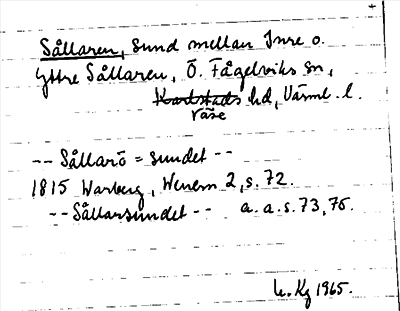 Sållaren, sund mellan Inre o.
Yttre Sållaren, Ö. Fågelviks sn,
Karlstads hd, Värml. l.
Väse
-- Sållarö = sundet --
1815 Warberg, Wenern 2, s. 72.
-- Sållarsundet -- a. a. s. 73, 76.
Kg 1965.